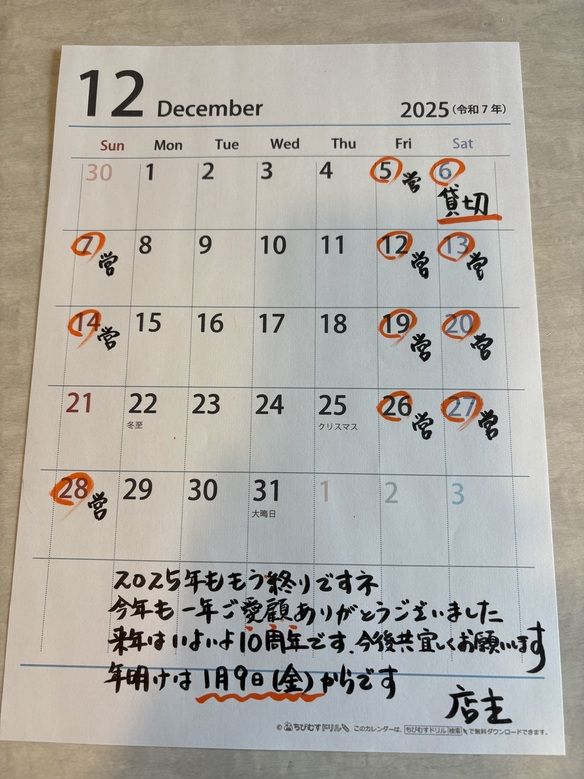 12 December 2025(令和7年)
Sun Mon Tue Wed Thu Fri Sat
30 1 2 3 4 5 営 6
貸切
7 営 8 9 10 11 12 営 13 営
14 営 15 16 17 18 19 営 20 営
21 22 23 24 25 26 営 27 営
冬至 クリスマス
28 営 29 30 31 1 2 3
大晦日
2025年ももう終りですネ
今年も一年ご愛顧ありがとうございました
来年はいよいよ10周年です、今後共宜しくお願いします
年明けは1月9日(金)からです
店主
© ちびむすドリル このカレンダーは、ちびむすドリル 検索 で無料ダウンロードできます。